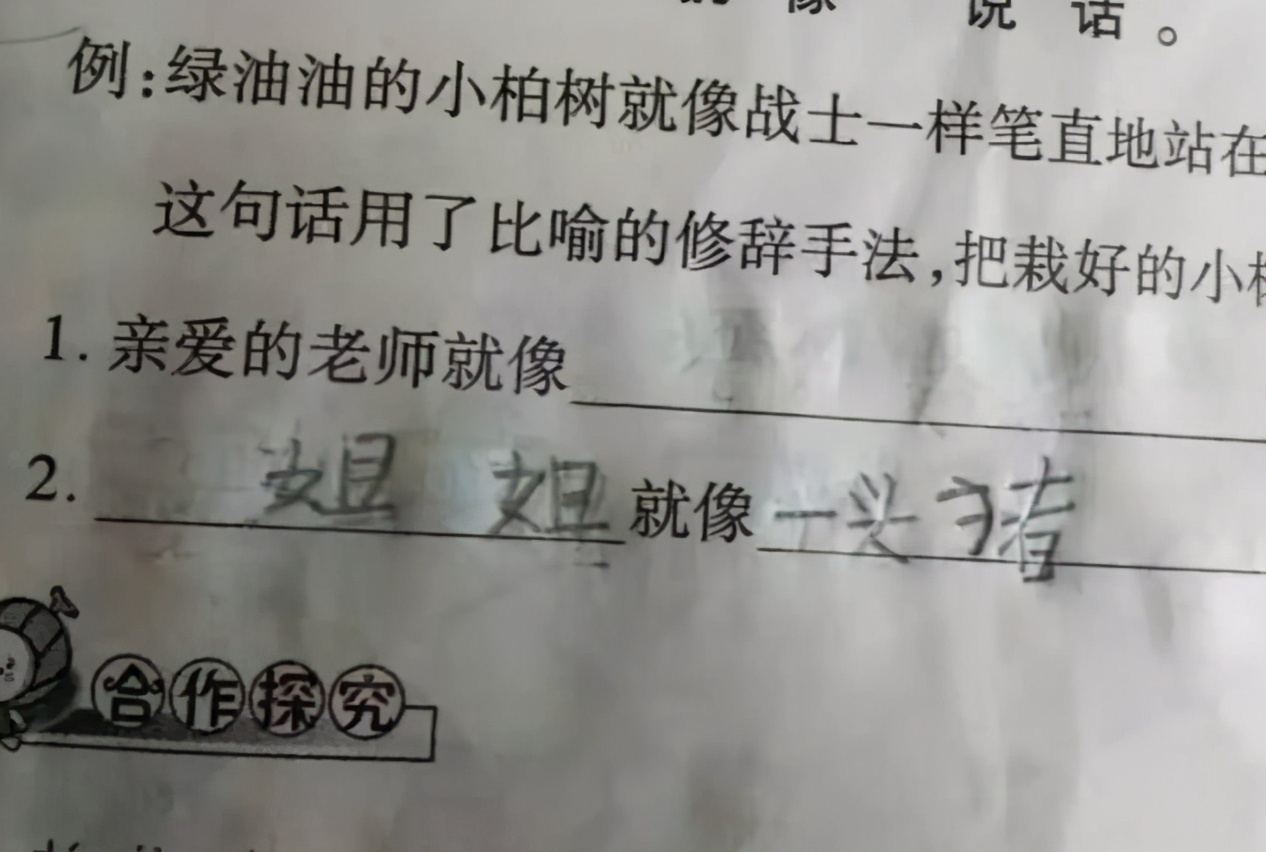 像 说话。
例:绿油油的小柏树就像战士一样笔直地站在
这句话用了比喻的修辞手法,把栽好的小
1. 亲爱的老师就像
2. 姐姐就像一头猪
合作探究